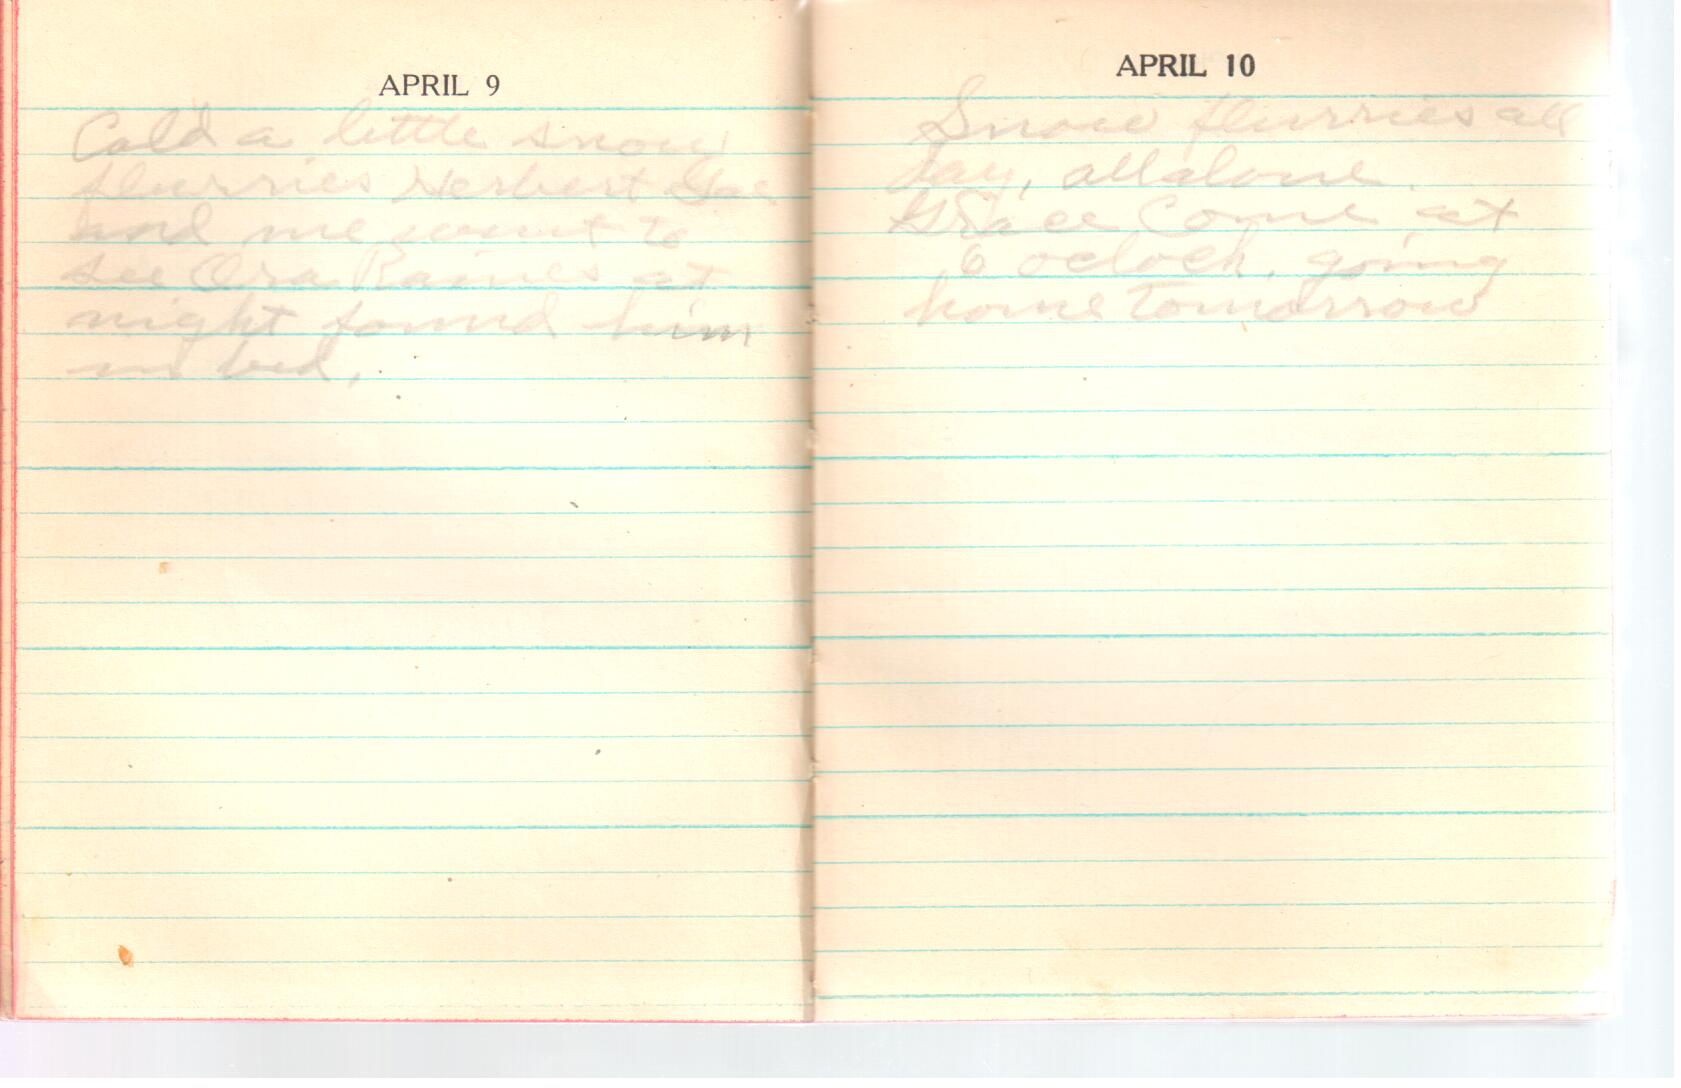 APRIL 9
Cold a little snow
flurries Herbert
and me went to
see Ora Raines at
night found him
in bed.
APRIL 10
Snow flurries all
day, all alone.
Grace Come at
6 oclock, going
home tomorrow